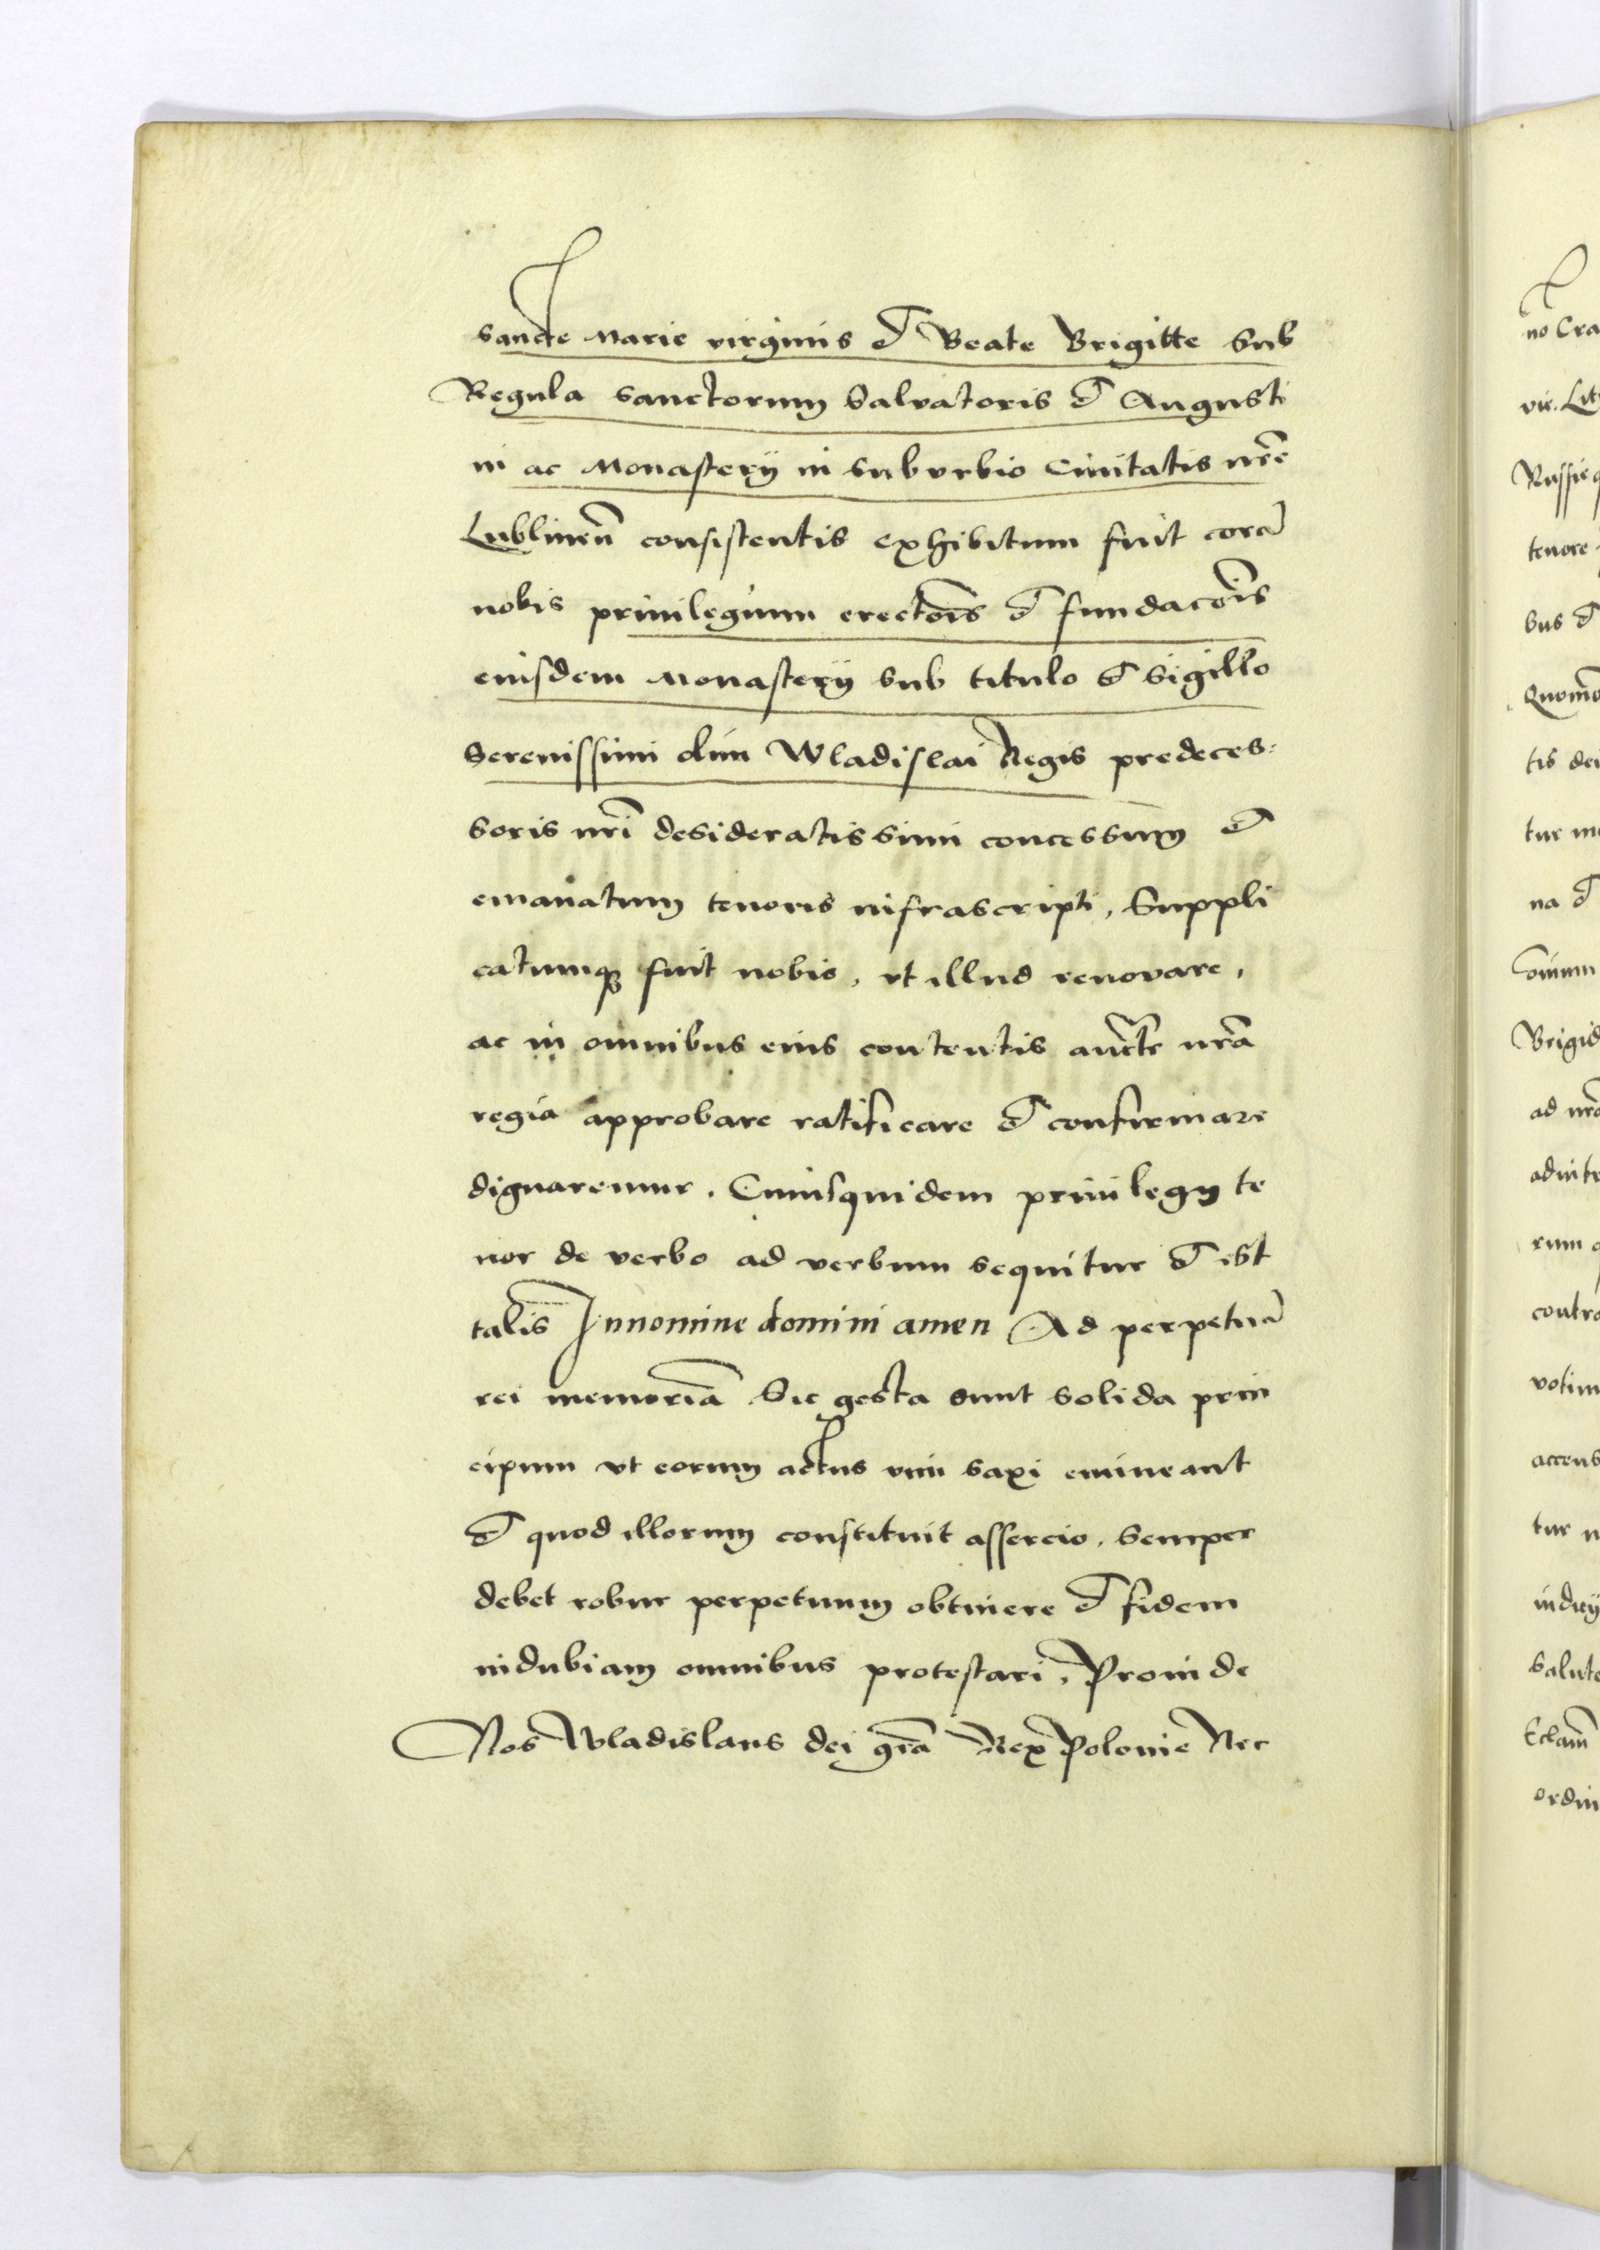 sancte Marie virginis et Beate Brigitte sub
Regula sanctorum Salvatoris et Augusti
ni ac Monasterij in suburbio Civitatis nrē
Lublinēn consistentis exhibitum fuit corā
nobis privilegium erectōis et fundacōis
eiusdem Monasterij sub titulo et sigillo
Serenissimi olim Wladislai Regis predeces:
soris nrī desideratissimi concessum et
emanatum tenoris infrascripti, Suppli
catumqȝ fuit nobis, vt illud renovare,
ac in omnibus eius contentis auctte nrā
regia approbare ratificare et confirmare
dignaremur. Cuiusquidem privilegij te
nor de verbo ad verbum sequitur et est
talis Innomine domini amen Ad perpetuā
rei memoriā Sic gesta sunt solida prin
cipum vt eorum actus vim saxi emineant
et quod illorum constituit assercio, semper
debet robur perpetuum obtinere et fidem
indubiam omnibus protestari, Proinde
Nos Wladislaus dei grā Rex Polonie Nec
no Cra
vie. Lit
Russieq
tenore
bus et
Quom
tis dei
tur
na et
Brigid
ad nrā
adinte
rum
contra
votiu
accens
tur
indicij
salute
ordin